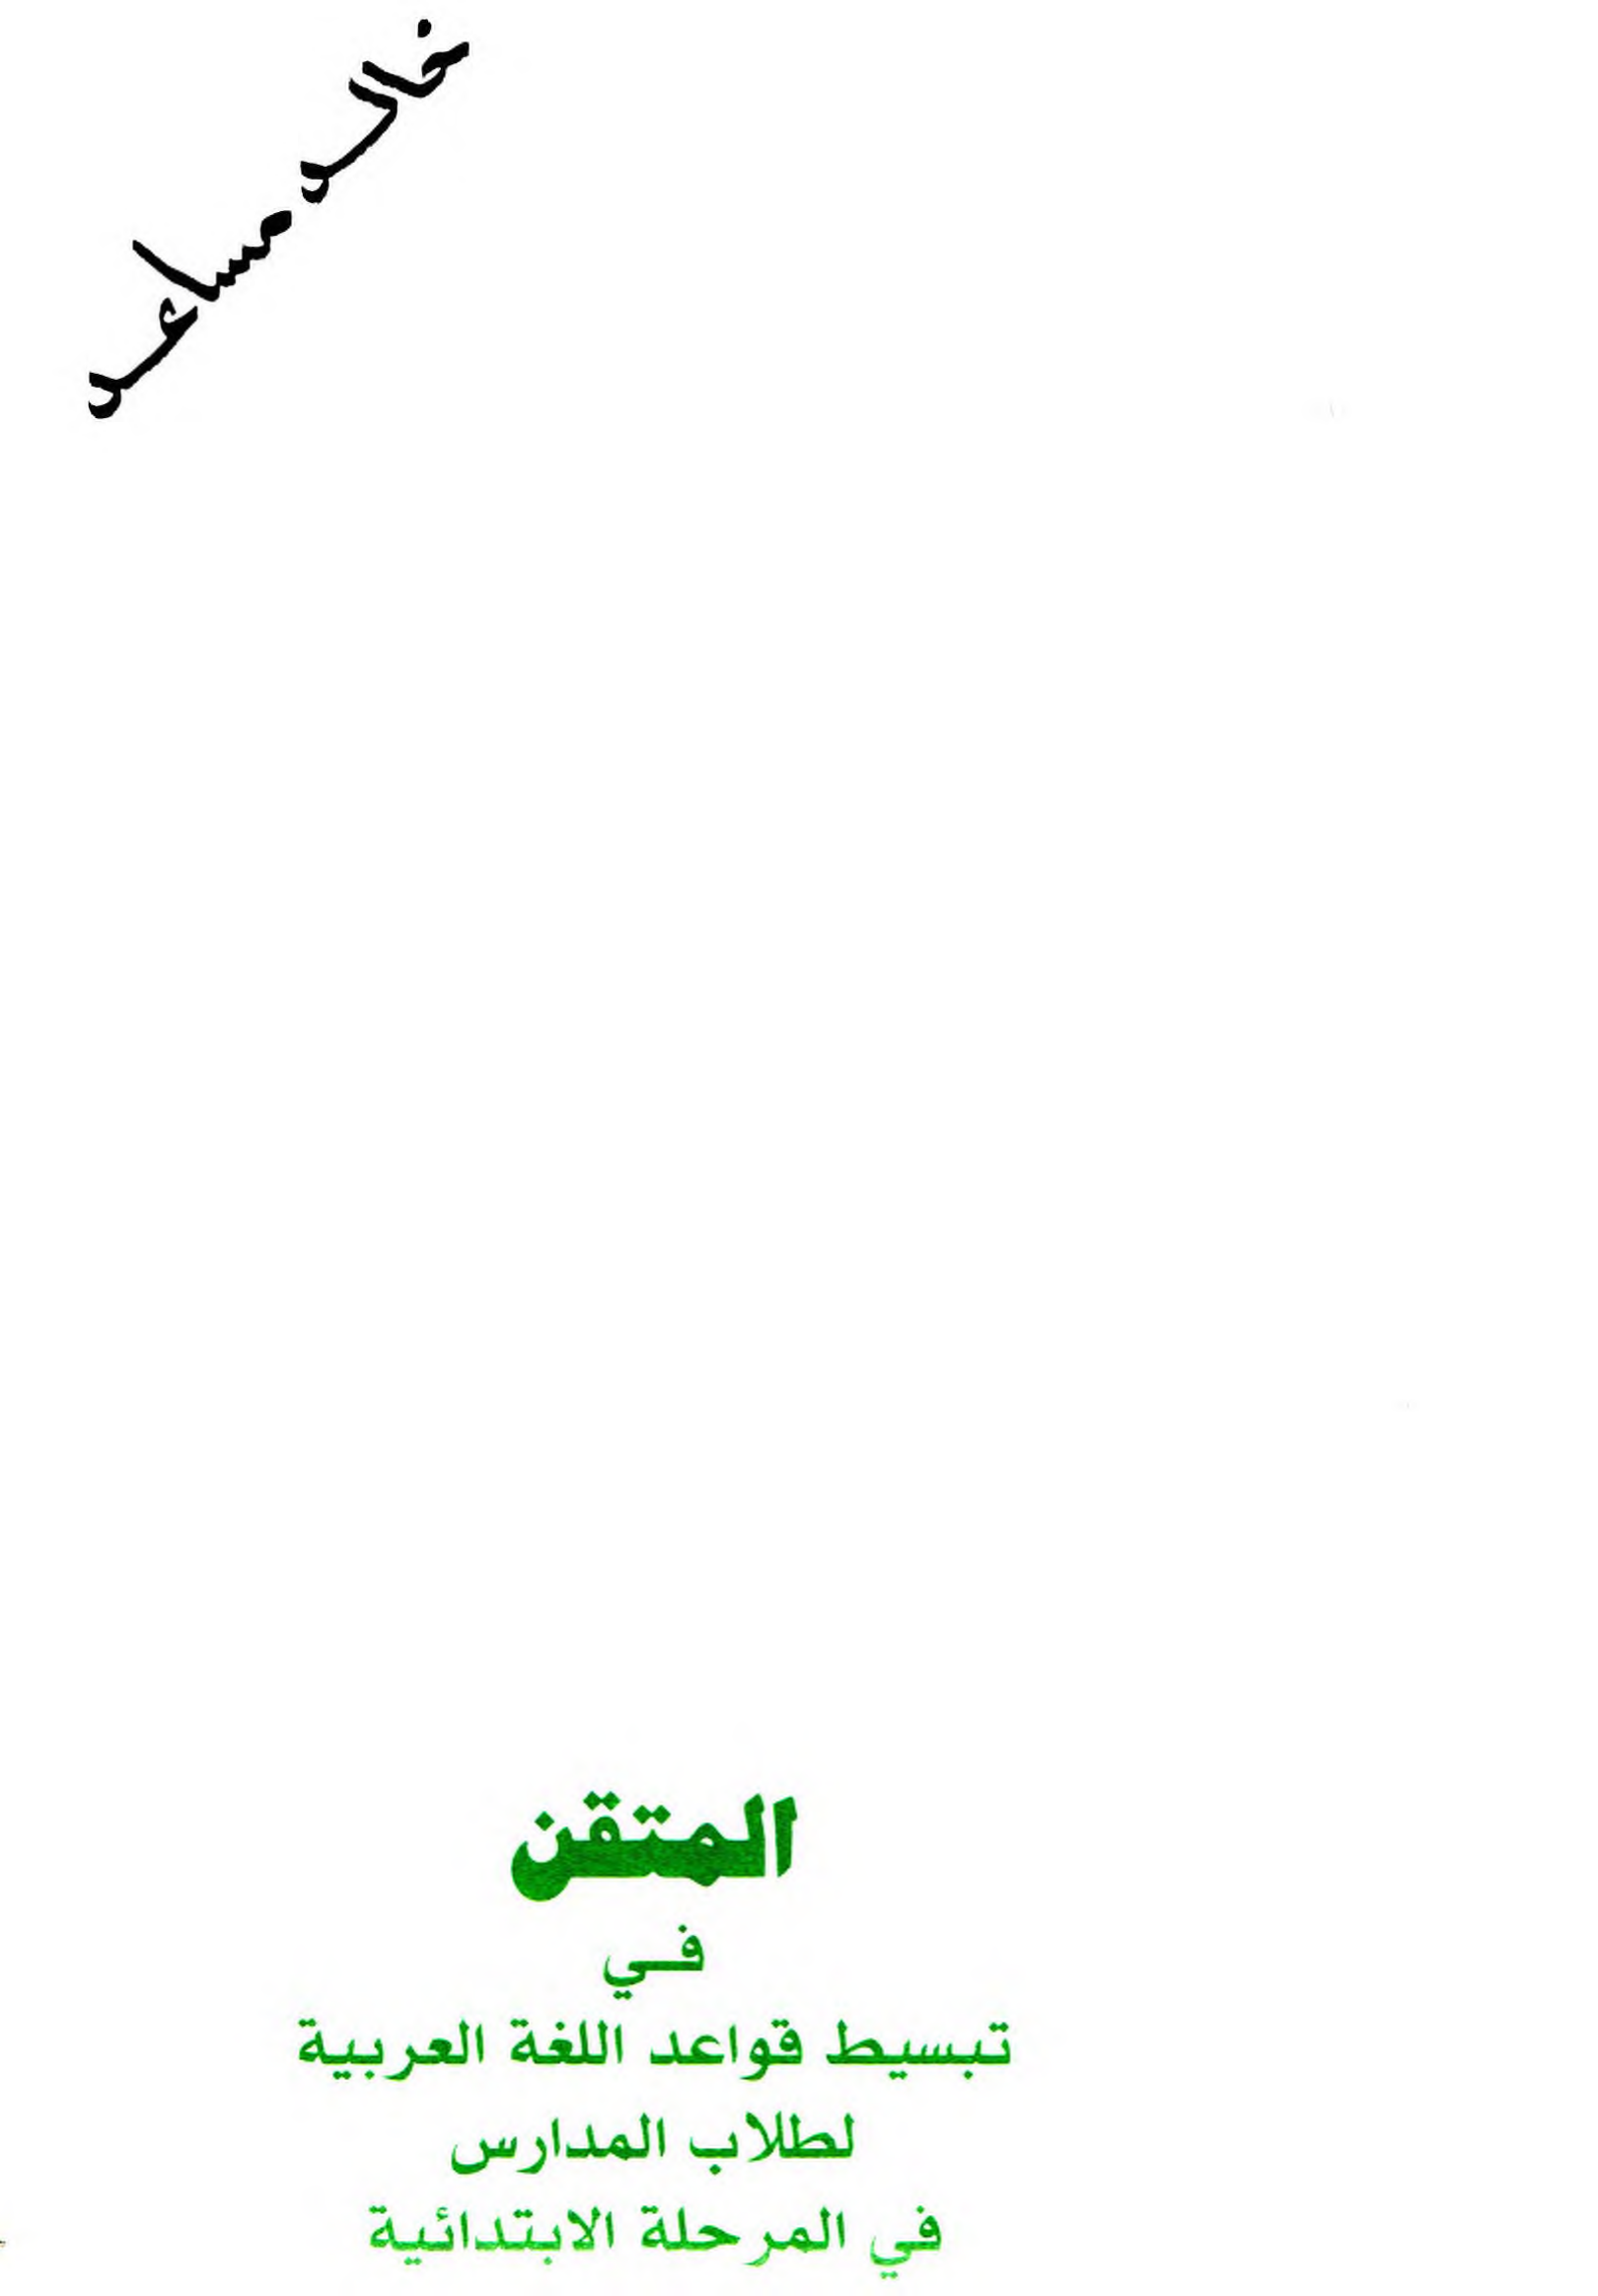 خالد مساعد
المتقن
في
تبسيط قواعد اللغة العربية
لطلاب المدارس
في المرحلة الابتدائية